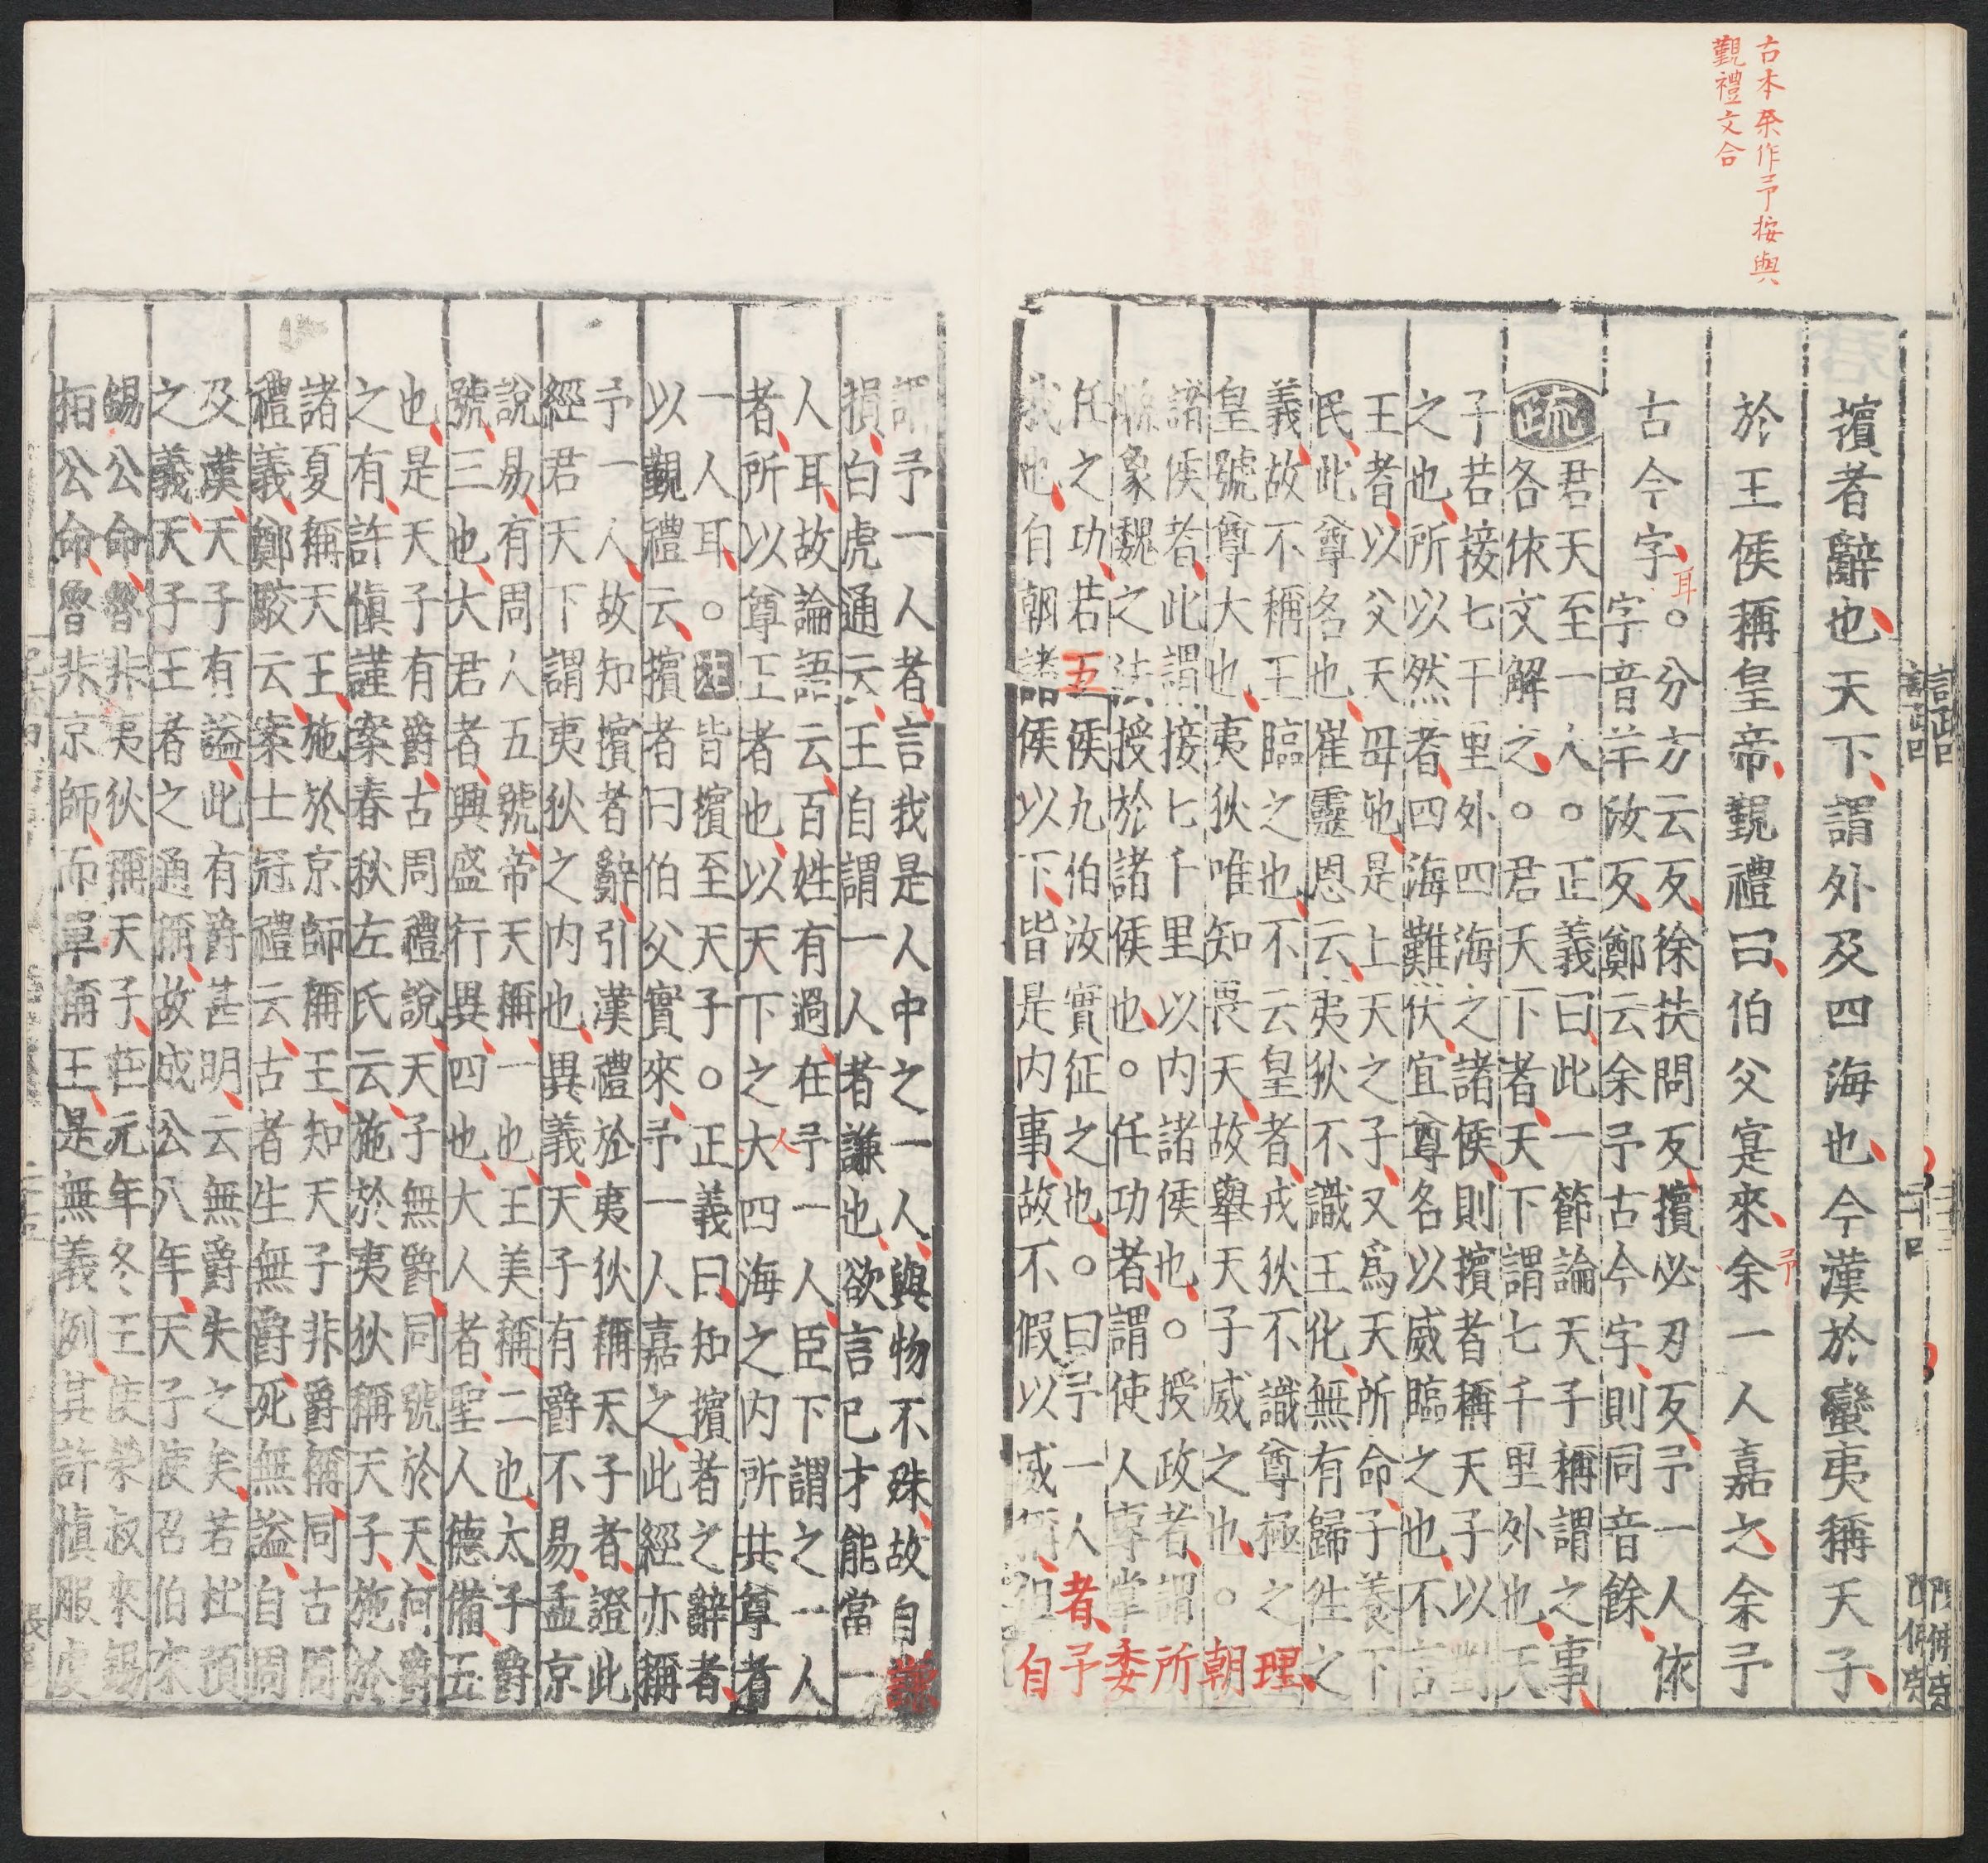 古本余作予按與
覲禮文合
擯者辭也天下謂外及四海也今漢於蠻夷稱天子
於王侯稱皇帝覲禮曰伯父寔來余一人嘉之余予
予
古今字
耳
。分方云反徐扶問反擯必刃反予一人依
字音羊汝反鄭云余予古今字則同音餘
疏
君天至一人。正義曰此一節論天子稱謂之事
各依文解之。君天下者天下謂七千里外也天
子若接七千里外四海之諸侯則擯者稱天子以對
之也所以然者四海難伏宜尊名以威臨之也不言
王者以父天母地是上天之子又爲天所命子養下
民此尊名也崔靈恩云夷狄不識王化無有歸往之
義故不稱王臨之也不云皇者戎狄不識尊極之理
皇號尊大也夷狄唯知畏天故舉天子威之也。朝
諸侯者此謂接七千里以內諸侯也。授政者謂所
縣象魏之法授於諸侯也。任功者謂使人專掌委
任之功若五侯九伯汝實征之也。曰予一人者予
我也自朝諸侯以下皆是内事故不假以威稱但自
謂予一人者言我是人中之一人與物不殊故自謙
損白虎通云王自謂一人者謙也欲言已才能當一
人耳故論語云百姓有過在予一人臣下謂之一人
者所以尊王者也以天下之大四海之内所共尊者
人
一人耳。注皆擯至天子。正義曰知擯者之辭者
以覲禮云擯者曰伯父實來予一人嘉之此經亦稱
予一人故知擯者辭引漢禮於夷狄稱天子者證此
經君天下謂夷狄之内也異義天子有爵不易孟京
說易有周人五號帝天稱一也王美稱二也天子爵
號三也大君者興盛行異四也大人者聖人德備五
也是天子有爵古周禮說天子無爵同號於天何爵
之有許愼謹案春秋左氏云施於夷狄稱天子施於
諸夏稱天王施於京師稱王知天子非爵稱同古周
禮義鄭駮云案士冠禮云古者生無爵死無謚自周
及漢天子有謚此有爵甚明云無爵失之矣若杜預
之義天子王者之通稱故成公八年天子使召伯來
錫公命魯非夷狄稱天子莊元年冬王使榮叔來錫
桓公命魯非京師而單稱王是無義例其許愼服虔